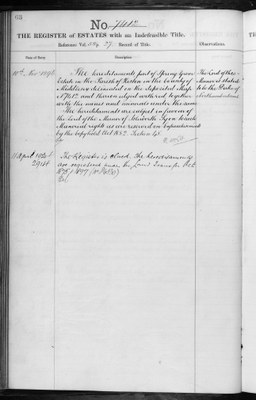 68
No. 7412
THE REGISTER OF ESTATES with an Indefeasible Title.
Reference: Vol. 27. Record of Title.
Date of Entry.
Description.
Observations.
The hereditaments part of Spring Grove
Estate in the Parish of Heston in the County of
Middlesex described in the deposited Map
and thereon edged with red together
with the mines and minerals under the same
The hereditaments are subject in favour of
the Lord of the Manor of Isleworth Syon to such
Manorial rights as are reserved on enfranchisement
by the Copyhold Act 1852. Section 48.
The Lord of the
Manor is stated
to be the Duke of
Northumberland
April
The Register is closed. The hereditaments
are registered under the Land Transfer Acts
1875 & 1897